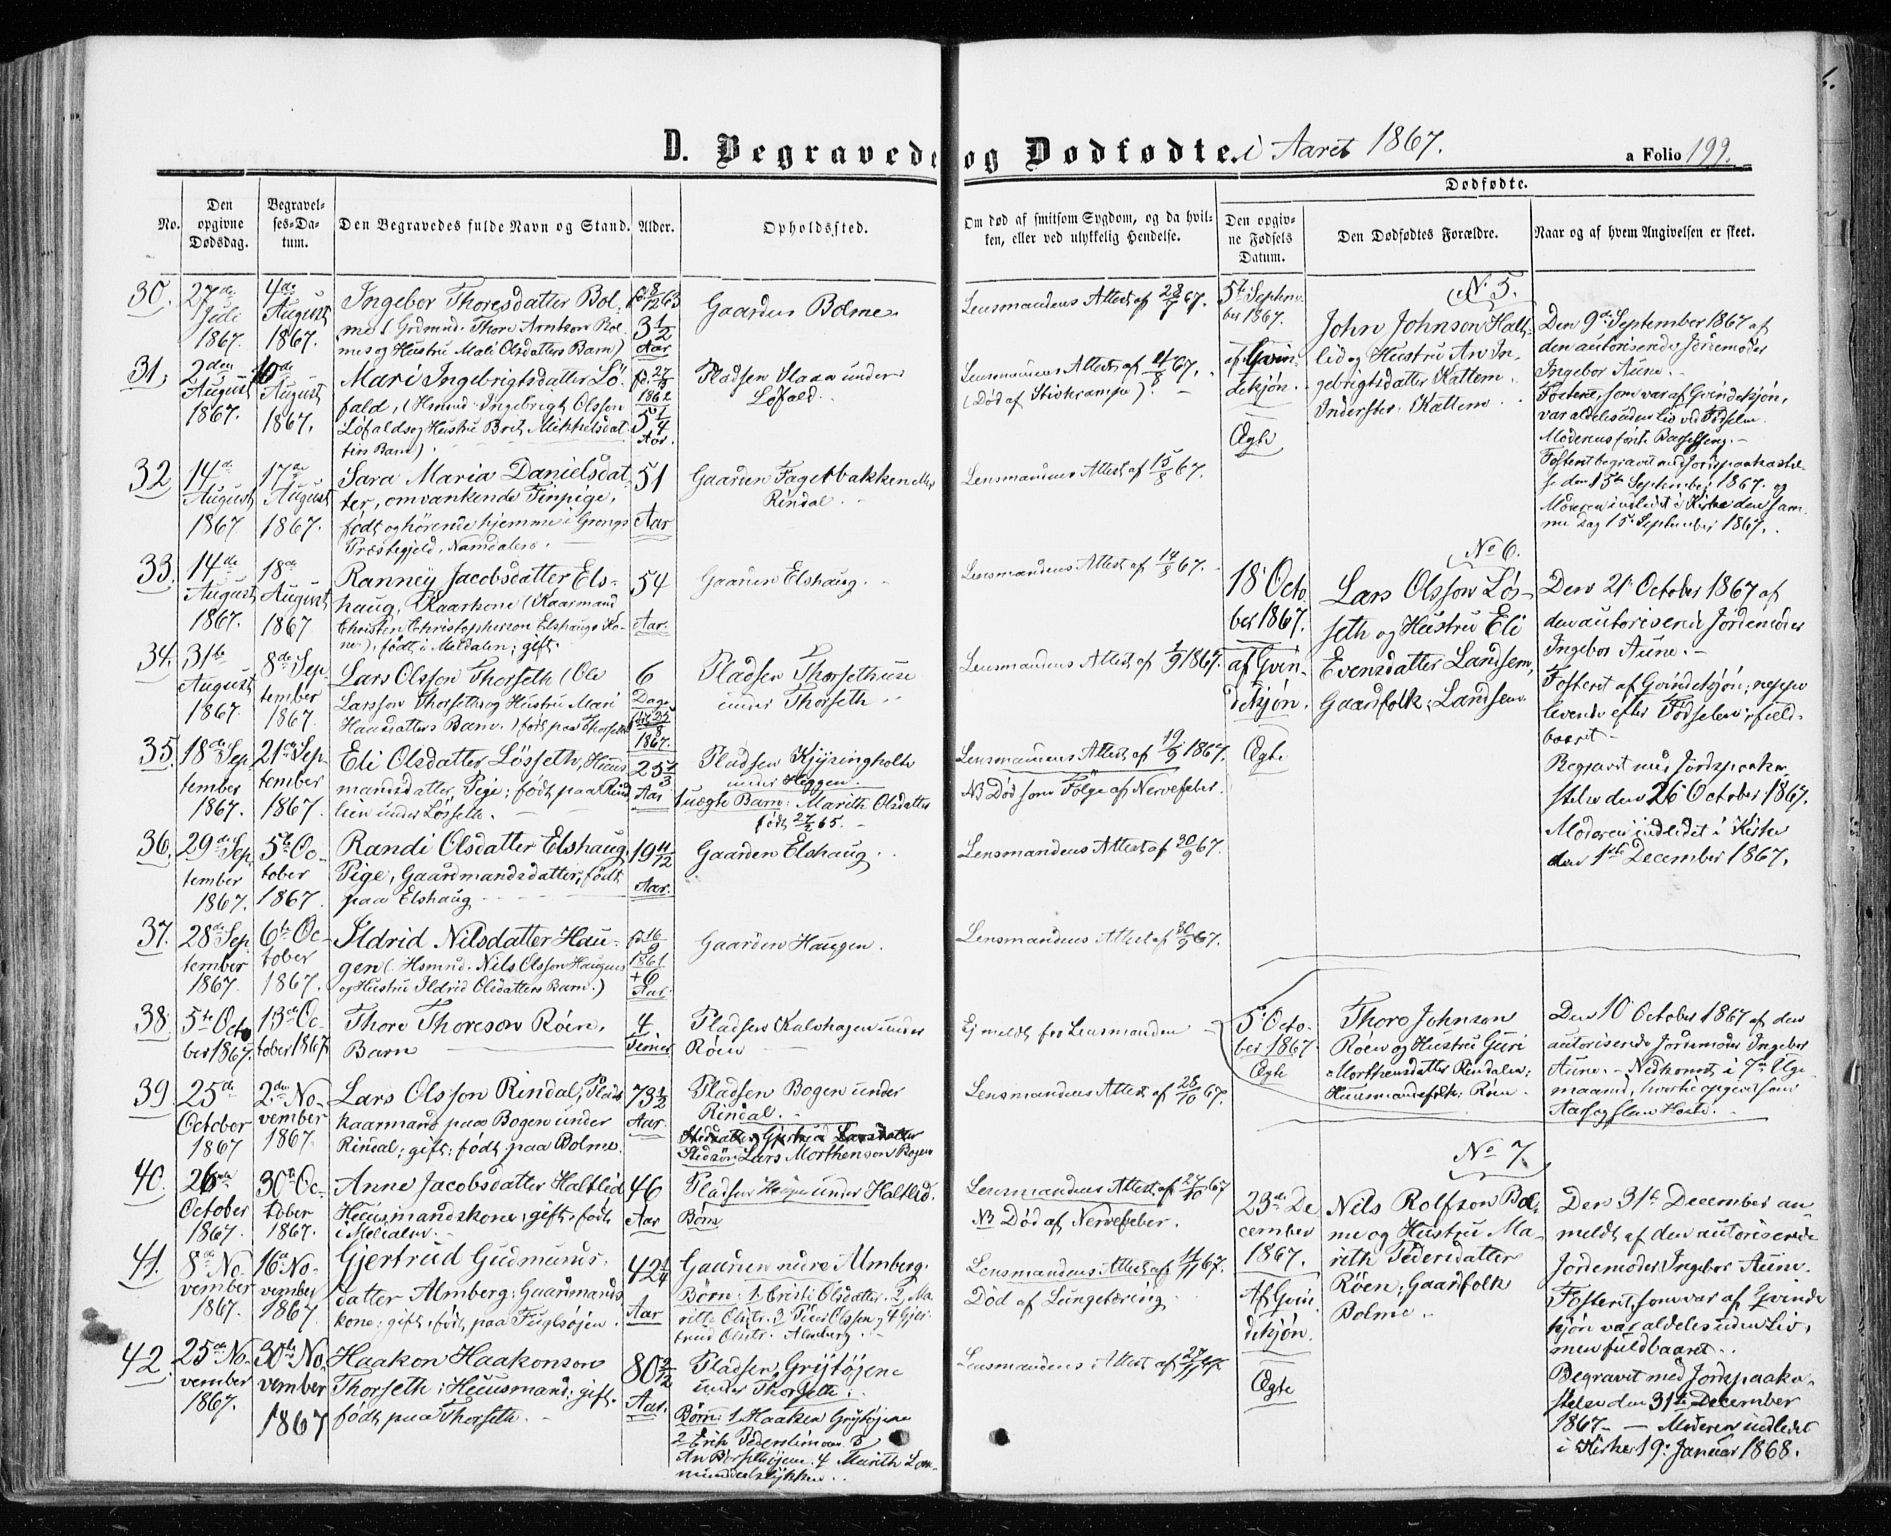 D. Begravede og Dødfødte. i Aaret 1867.
a Folio 199.
No.
Den opgivne Dødsdag.
Begravelses-Datum.
Den Begravedes fulde Navn og Stand.
Alder.
Opholdssted.
Om død af smitsom Sygdom, og da hvilken, eller ved ulykkelig Hendelse.
Dødfødte.
Den opgivne Fødsels Datum.
Den Dødfødtes Forældre.
Naar og af hvem Angivelsen er skeet.
30. 27de Juli 1867. 4de August 1867.
Ingebor Thoresdatter Bol-
mes Grdmnd. Thore Arntsen Bol-
mes og Hustru Mali Olsdatters Barn)
3 1/2 Aar
Gaarden Bolme.
Lensmandens Attest af 28/7 67.
31. 2den August 1867. 10de August 1867.
Mari Ingebrigtsdatter Lø-
fald, (Hsmnd. Ingebrigt Olsson
Løfalds og Hustru Brit Mikkelsdat-
ters Barn).
f. 27/3 1862
5 1/4 Aar.
Pladsen Slaaa under
Løfald.
Lensmandens Attest af 4/8 67.
(Død af Stivkrampe).
32. 14de August 1867 17de August 1867.
Sara Maria Danielsdat
ter, omvankende Finpige,
født og hørende hjemme i Grongs
Præstegjeld, Namdalen.
51 Aar
Gaarden Fagerbakken
Rindal.
Lensmandens Attest af 15/8 67.
33. 14de August 1867. 18de August 1867
Ranney Jacobsdatter Els-
haug, Kaarkone (Kaarmand
Christen Christophersen Elshaugs Ko-
ne), født i Meldalen; gift.
54 Aar.
Gaarden Elshaug.
Lensmandens Attest af 14/8 67.
34. 31te August 1867. 8de September 1867.
Lars Olsson Thorseth (Ole
Larsson Thorseths og Hustru Mari
Hansdatters Barn.) født paa Thorseth
6 Dage
1867.
Pladsen Thorsethuse
under Thorseth.
Lensmandens Attest af 1/9 1867.
35. 18de September 1867. 21de September 1867.
Eli Olsdatter Løsseth, Huus
mandsdatter, Pige; født paa Rind
lien under Løsseth.
25 1/3 Aar
Pladsen Kjysingholte
under Heggem.
1 uægte Barn: Marith Olsdatter
født 27/2 65.
Lensmandens Attest af 19/9 1867.
NB Død som Følge af Nervefeber.
36. 29de September 1867. 5te October 1867.
Randi Olsdatter Elshaug,
Pige, Gaardmandsdatter, født
paa Elshaug
19 11/12 Aar.
Gaarden Elshaug.
Lensmandens Attest af 30/9 67.
37. 28de September 1867. 6te October 1867.
Ildrid Nilsdatter Hau-
gen (Hsmnd. Nils Olsson Haugens
og Hustru Ildrid Olsdatters Barn.)
f. 16/9 1861
+ 6 Aar.
Gaarden Haugen.
Lensmandens Attest af 30/9 67.
38. 5te October 1867. 13de October 1867.
Thore Thoreson Røen,
Barn
4 Timer
Pladsen Kalvhagen under
Røen
Ej meldt fra Lensmanden
39. 25de October 1867 2den November 1867.
Lars Olsson Rindal, Plads
kaarmand paa Bogen under
Rindal; gift; født paa Bolme.
73 1/2 Aar.
Pladsen Bogen under
Rindal.
Stedsøn: Lars Morthenson Bogen
Lensmandens Attest af 28/10 67.
40. 26de October 1867. 30te October 1867.
Anne Jacobsdatter Haltlid
Huusmandskone; gift, født
i Meldalen.
46 Aar
Pladsen Haugen under Haltlid.
Børn
Lensmandens Attest af 27/10 67
NB Død af Nervefeber.
41. 8de November 1867. 16de November 1867.
Gjertrud Gudmunds-
datter Almberg; Gaardmands
kone; gift, født paa Fuglsøjen.
42 1/4 Aar
Gaarden nedre Almberg.
Børn: 1. Eristi Olsdatter. 2. Ma-
ritte Olsdtr. 3 Peder Olsson og 4 Gjer-
trud Olsdtr. Almberg.
Lensmandens Attest af 11/11 67.
Død af Lungetæring.
42. 25de November 1867. 30te November 1867
Haakon Haakonson
Thorseth; Huusmand; gift.
født paa Thorseth.
80 2/12 Aar.
Pladsen Grytøjene
under Thorseth.
Børn: 1 Haaken Grytøjene
2 Erik Pederslimoen 3
An Børsethøjem. 4 Marith Lom-
mundalstykken.
Lensmandens Attest af 27/11 67.
No 5.
5te September 1867.
af Qvindekjøn.
Ægte
John Johnson Halt-
lid og Hustru An In-
gebrigtsdatter Kattem
Inderster. Kattem
Den 9de September 1867 af
den autoriserede Jordemoder
Ingebor Aune.
Fosteret, som var af Qvindekjøn,
var aldeles uden Liv ved Fødselen.
Moderens første Barselseng.
Fosteret begravet med Jordspaakastel-
se den 15de September 1867. og
Moderen indledet i Kirke den sam-
me dag 15. September 1867.
No 6.
18. October 1867.
af Qvindekjøn.
Ægte
Lars Olsson Løs-
seth og Hustru Eli
Evensdatter Landsem,
Gaardfolk, Landsem
Den 21. October 1867 af
den autoriserede Jordemoder
Ingebor Aune.
Fosteret af Qvindekjøn; neppe
levende efter Fødselen; fuld-
baaret
Begravet med Jordspaaka-
stelse den 26 October 1867.
Moderen indledet i Kirke
den 1ste December 1867.
5. October 1867
Ægte
Thore Johnson
Røen og Hustru Guri
Morthensdatter Rindalen;
Huusmandsfolk; Røen.
Den 10 October 1867 af den
autoriserede Jordemoder Ingebor
Aune. Nedkomst i 7de
maaned,
No 7.
23de December 1867.
Af Qvindekjøn.
Ægte
Nils Rolfson Bol-
me og Hustru Ma-
rith Pedersdatter
Røen; Gaardfolk
Bolme.
Den 31te December an-
meldt af den autoriserede
Jordemoder Ingebor Aune.
Fosteret, som var af Qvinde
kjøn var aldeles uden Liv,
men fuldbaaret.
Begravet med Jordspaaka-
stelse den 31te December
1867. Moderen indledet
i Kirke 19. Januar 1868.